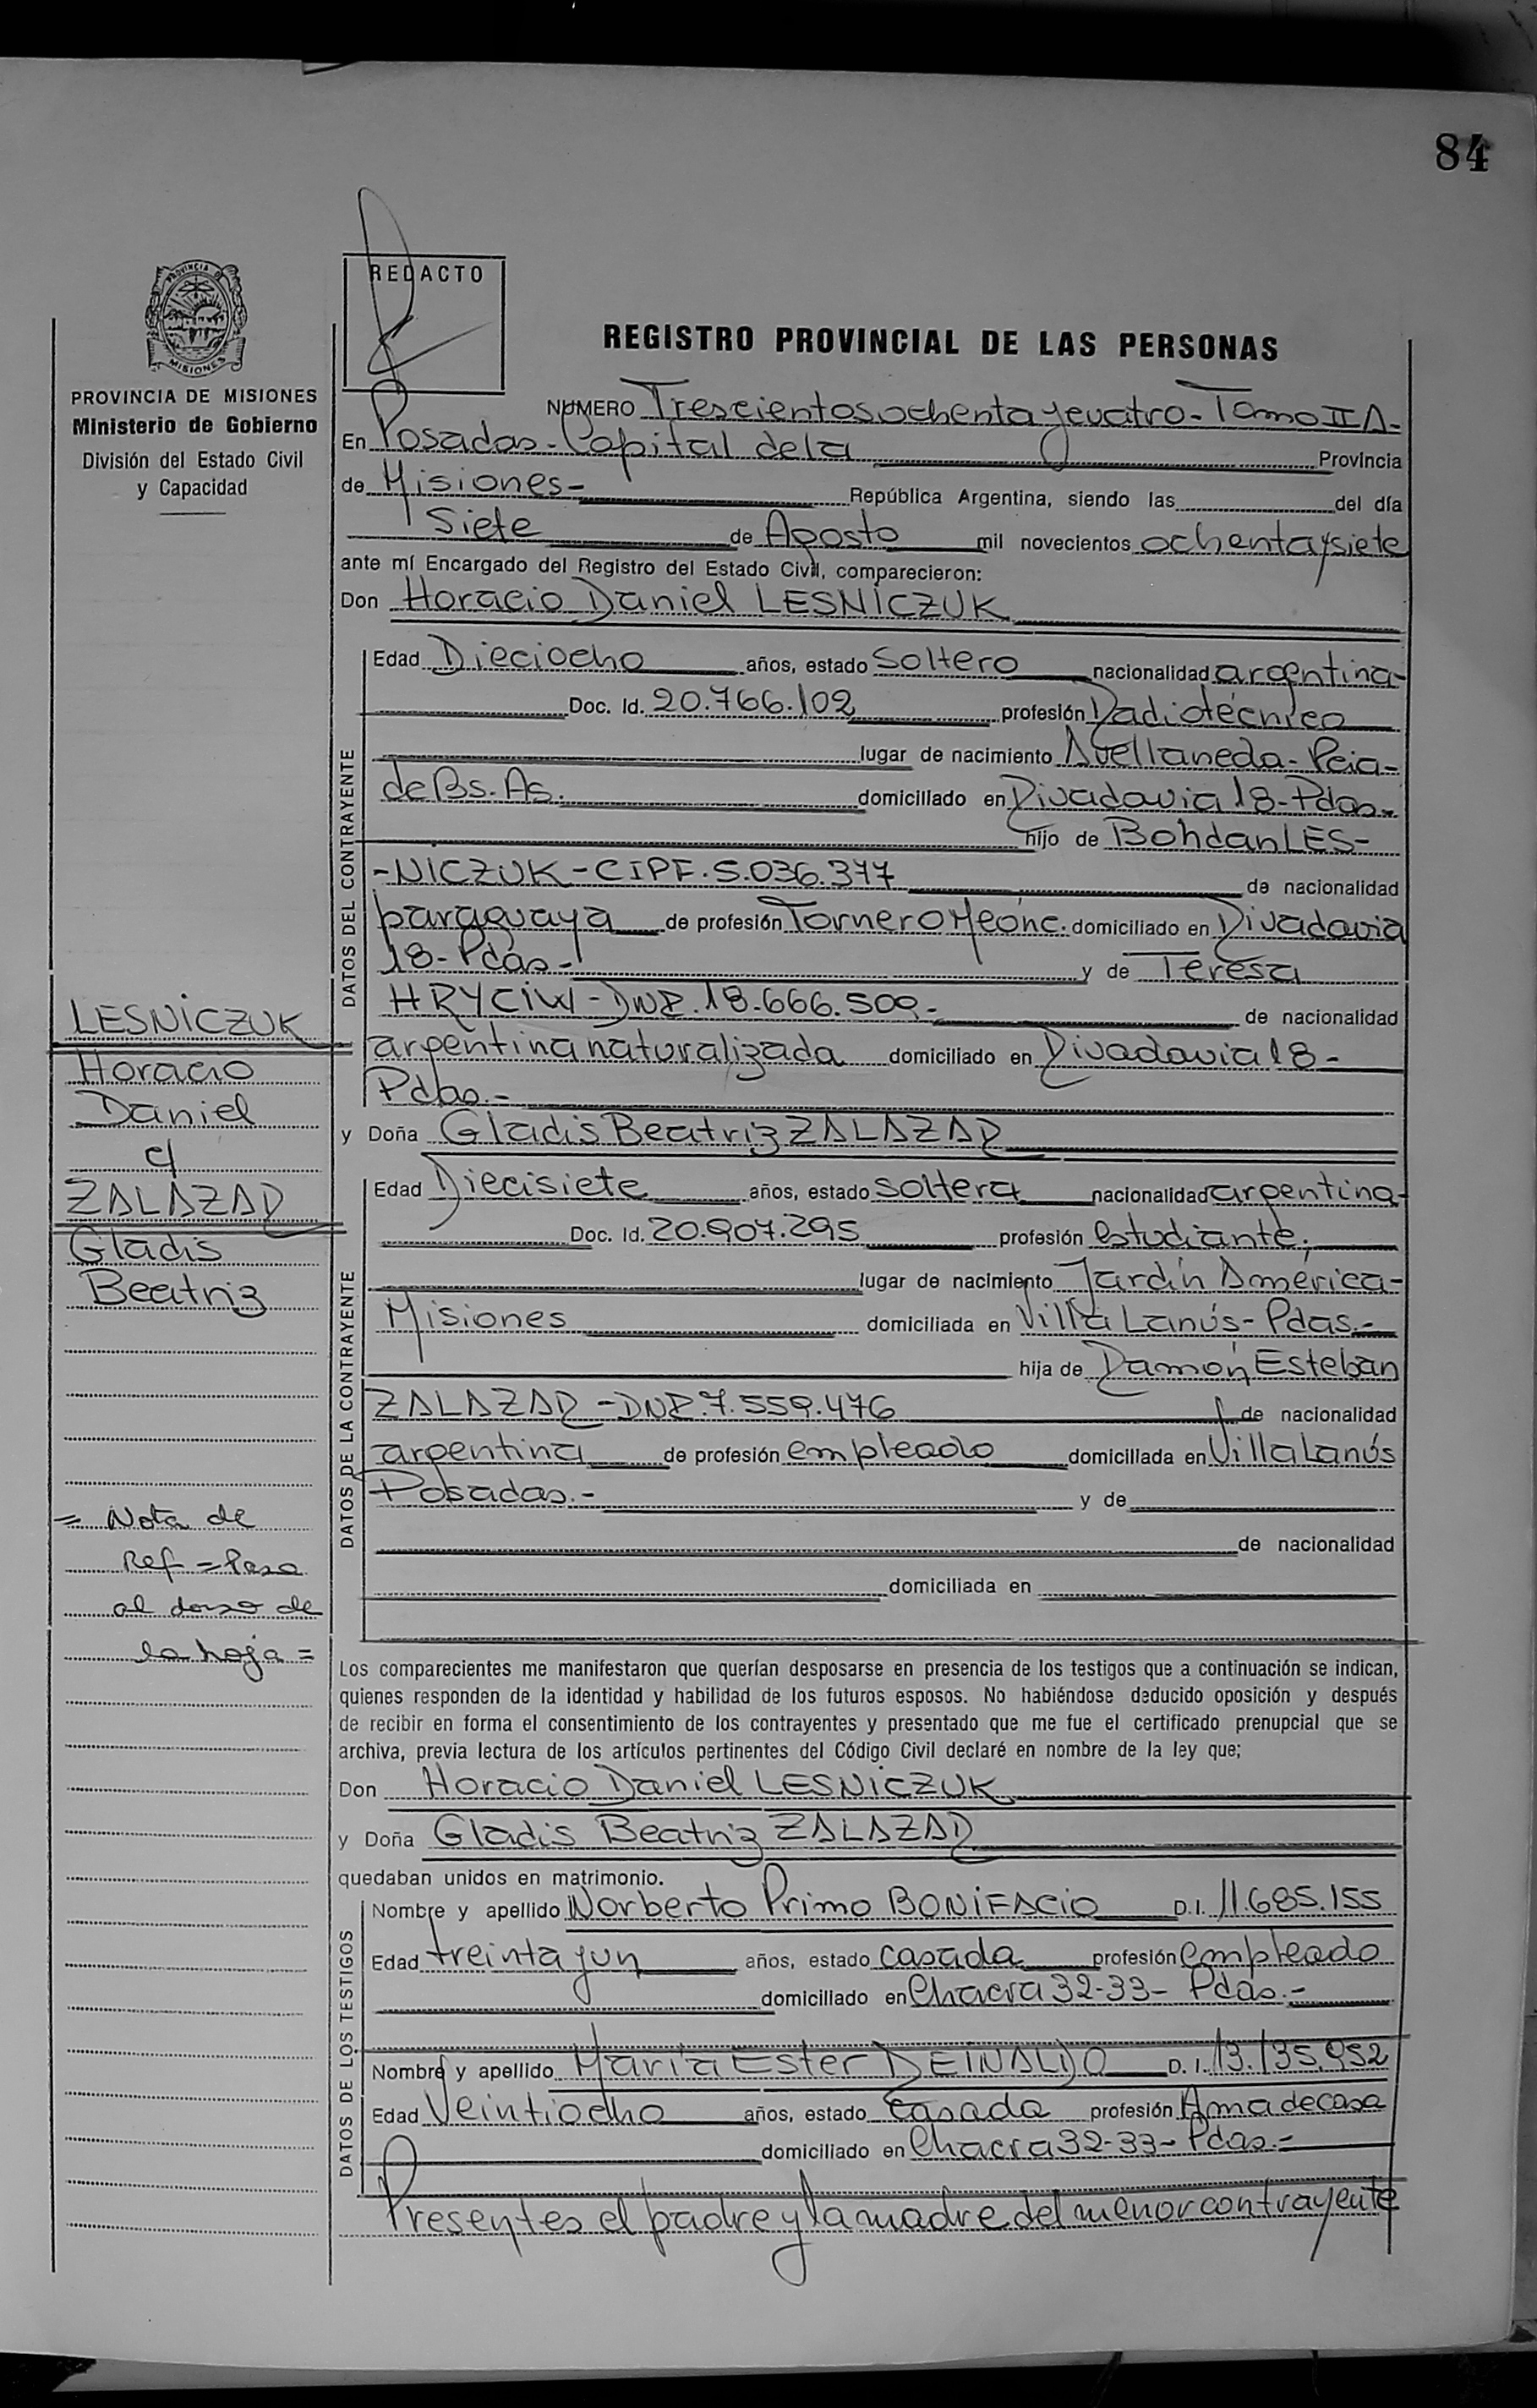 84
PROVINCIA DE
MISIONES
REDACTO
REGISTRO PROVINCIAL DE LAS PERSONAS
PROVINCIA DE MISIONES
Ministerio de Gobierno
División del Estado Civil
y Capacidad
NUMERO Trescientos ochenta y cuatro - Tomo II A.-
En Posadas - Capital de la Provincia
de Misiones - República Argentina, siendo las del día
Siete de Agosto mil novecientos ochenta y siete
ante mí Encargado del Registro del Estado Civil, comparecieron:
Don Horacio Daniel LESNICZUK
DATOS DEL CONTRAYENTE
Edad Dieciocho años, estado Soltero nacionalidad argentina-
Doc. Id. 20.766.102 profesión Radiotécnico
lugar de nacimiento Avellaneda - Pcia-
de Bs. As. domiciliado en Rivadavia 18 - Pdas.-
hijo de Bohdan LES-
-NICZUK - CIPF. 5.036.377 de nacionalidad
paraguaya de profesión Tornero Mecánc. domiciliado en Rivadavia
18 - Pdas.- y de Teresa
HRYCIW - DNI. 18.666.509.- de nacionalidad
argentina naturalizada domiciliado en Rivadavia 18 -
Pdas.-
y Doña Gladis Beatriz ZALAZAR
DATOS DE LA CONTRAYENTE
Edad Diecisiete años, estado Soltera nacionalidad argentina-
Doc. Id. 20.907.295 profesión estudiante.
lugar de nacimiento Jardín América-
Misiones domiciliada en Villa Lanús - Pdas.-
hija de Ramón Esteban
ZALAZAR - DNI. 7.559.476 de nacionalidad
argentina de profesión empleado domiciliada en Villa Lanús
Posadas.- y de
de nacionalidad
domiciliada en
Los comparecientes me manifestaron que querían desposarse en presencia de los testigos que a continuación se indican,
quienes responden de la identidad y habilidad de los futuros esposos. No habiéndose deducido oposición y después
de recibir en forma el consentimiento de los contrayentes y presentado que me fue el certificado prenupcial que se
archiva, previa lectura de los artículos pertinentes del Código Civil declaré en nombre de la ley que;
Don Horacio Daniel LESNICZUK
y Doña Gladis Beatriz ZALAZAR
quedaban unidos en matrimonio.
DATOS DE LOS TESTIGOS
Nombre y apellido Norberto Primo BONIFACIO D.I. 11.685.155
Edad treinta y un años, estado casada profesión empleado
domiciliado en Chacra 32-33 - Pdas.-
Nombre y apellido María Ester REINALDO D.I. 13.135.952
Edad Veintiocho años, estado Casada profesión Ama de casa
domiciliado en Chacra 32-33 - Pdas.-
Presentes el padre y la madre del menor contrayente
LESNICZUK
Horacio
Daniel
c/
ZALAZAR
Gladis
Beatriz
= Nota de
Ref = Pasa
al dorso de
la hoja =